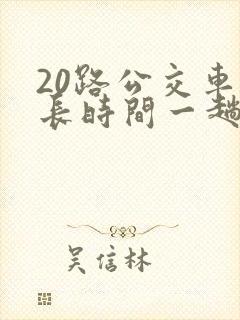 20路公交車
長時間一趟
吴信林